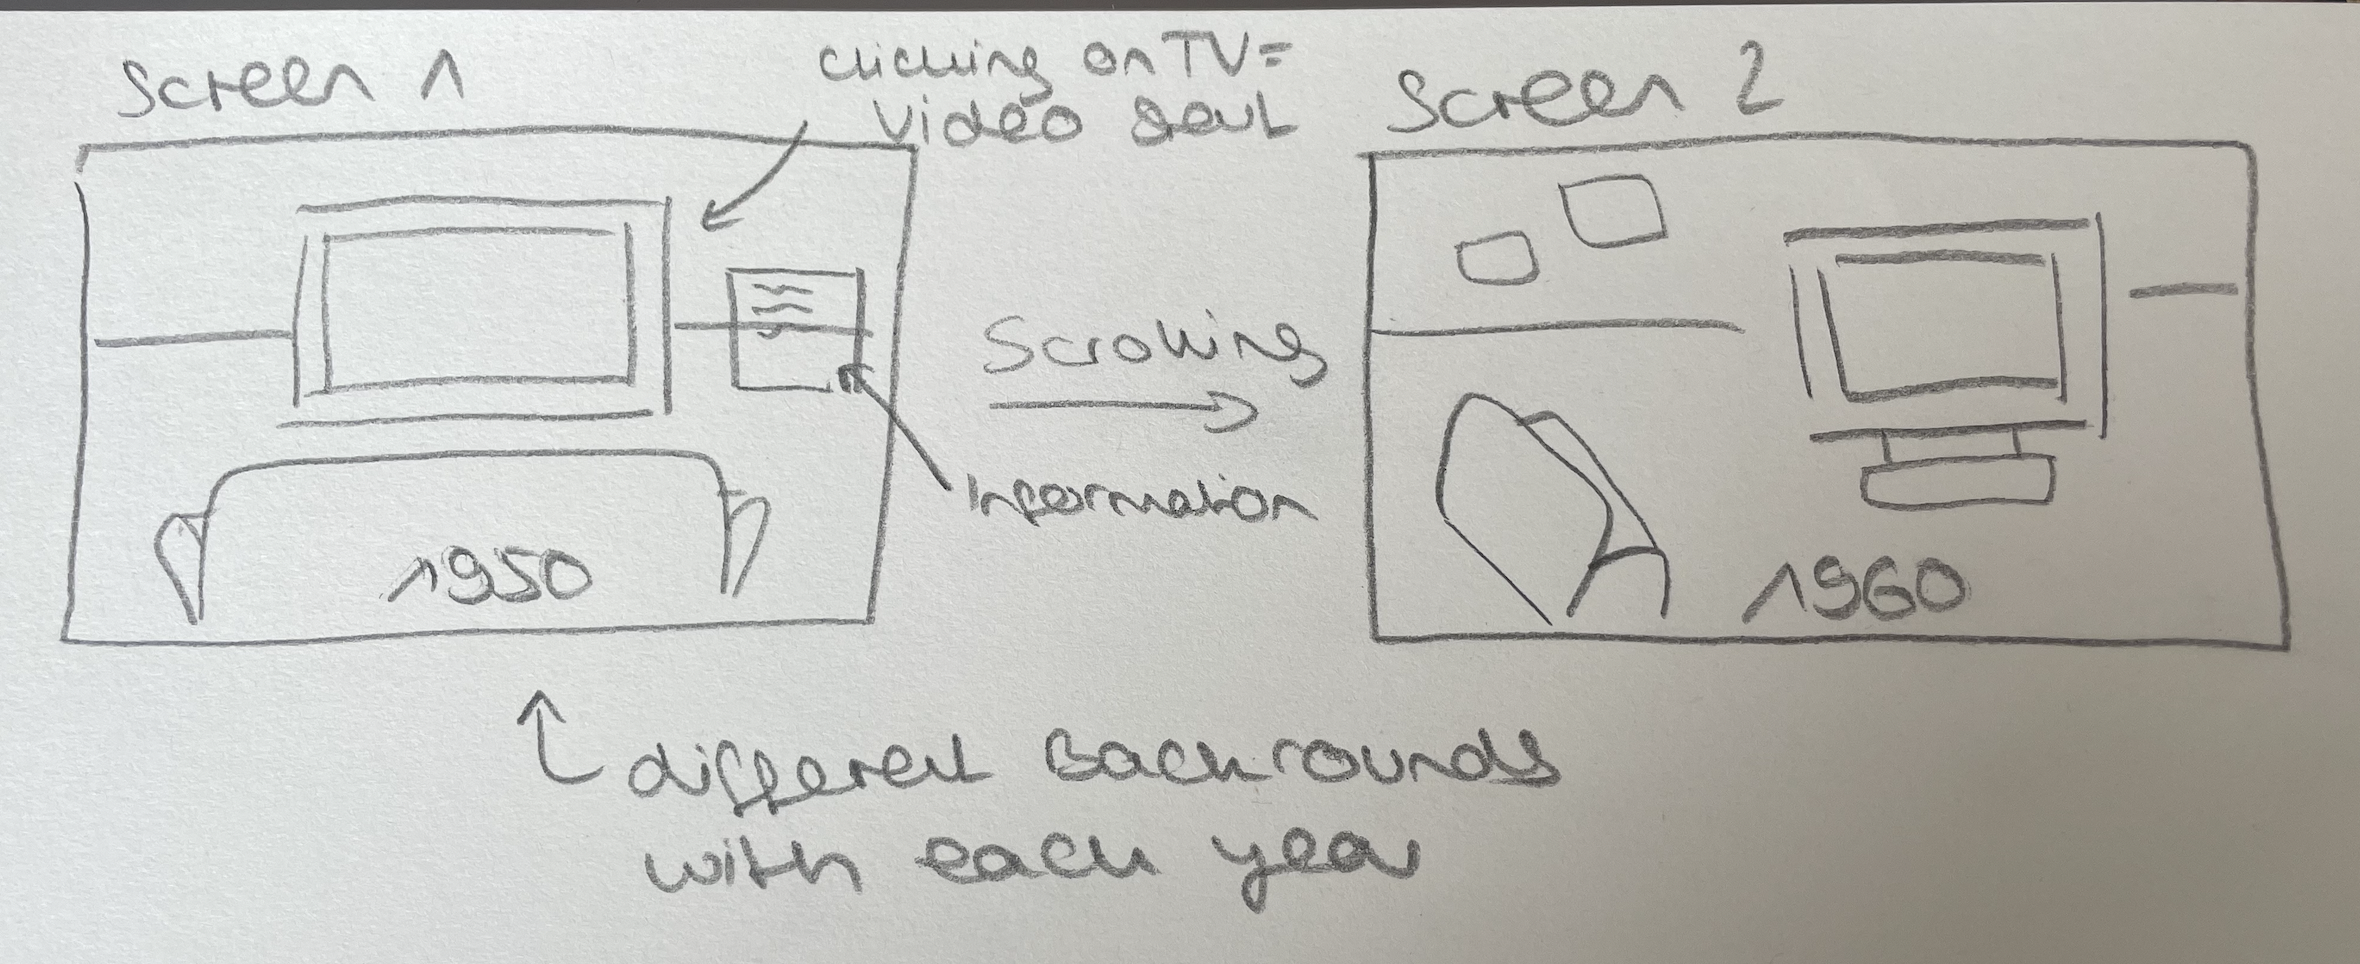 Screen 1
clicking on TV=
Video start
Screen 2
Scrolling
Information
1950
1960
different Backrounds
with each year